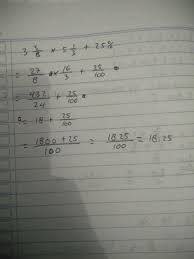 3 3/8 × 5 1/3 + 25%
= 27/8 × 16/3 + 25/100
= 432/24 + 25/100
= 18 + 25/100
= 1800 + 25/100 = 1825/100 = 18,25